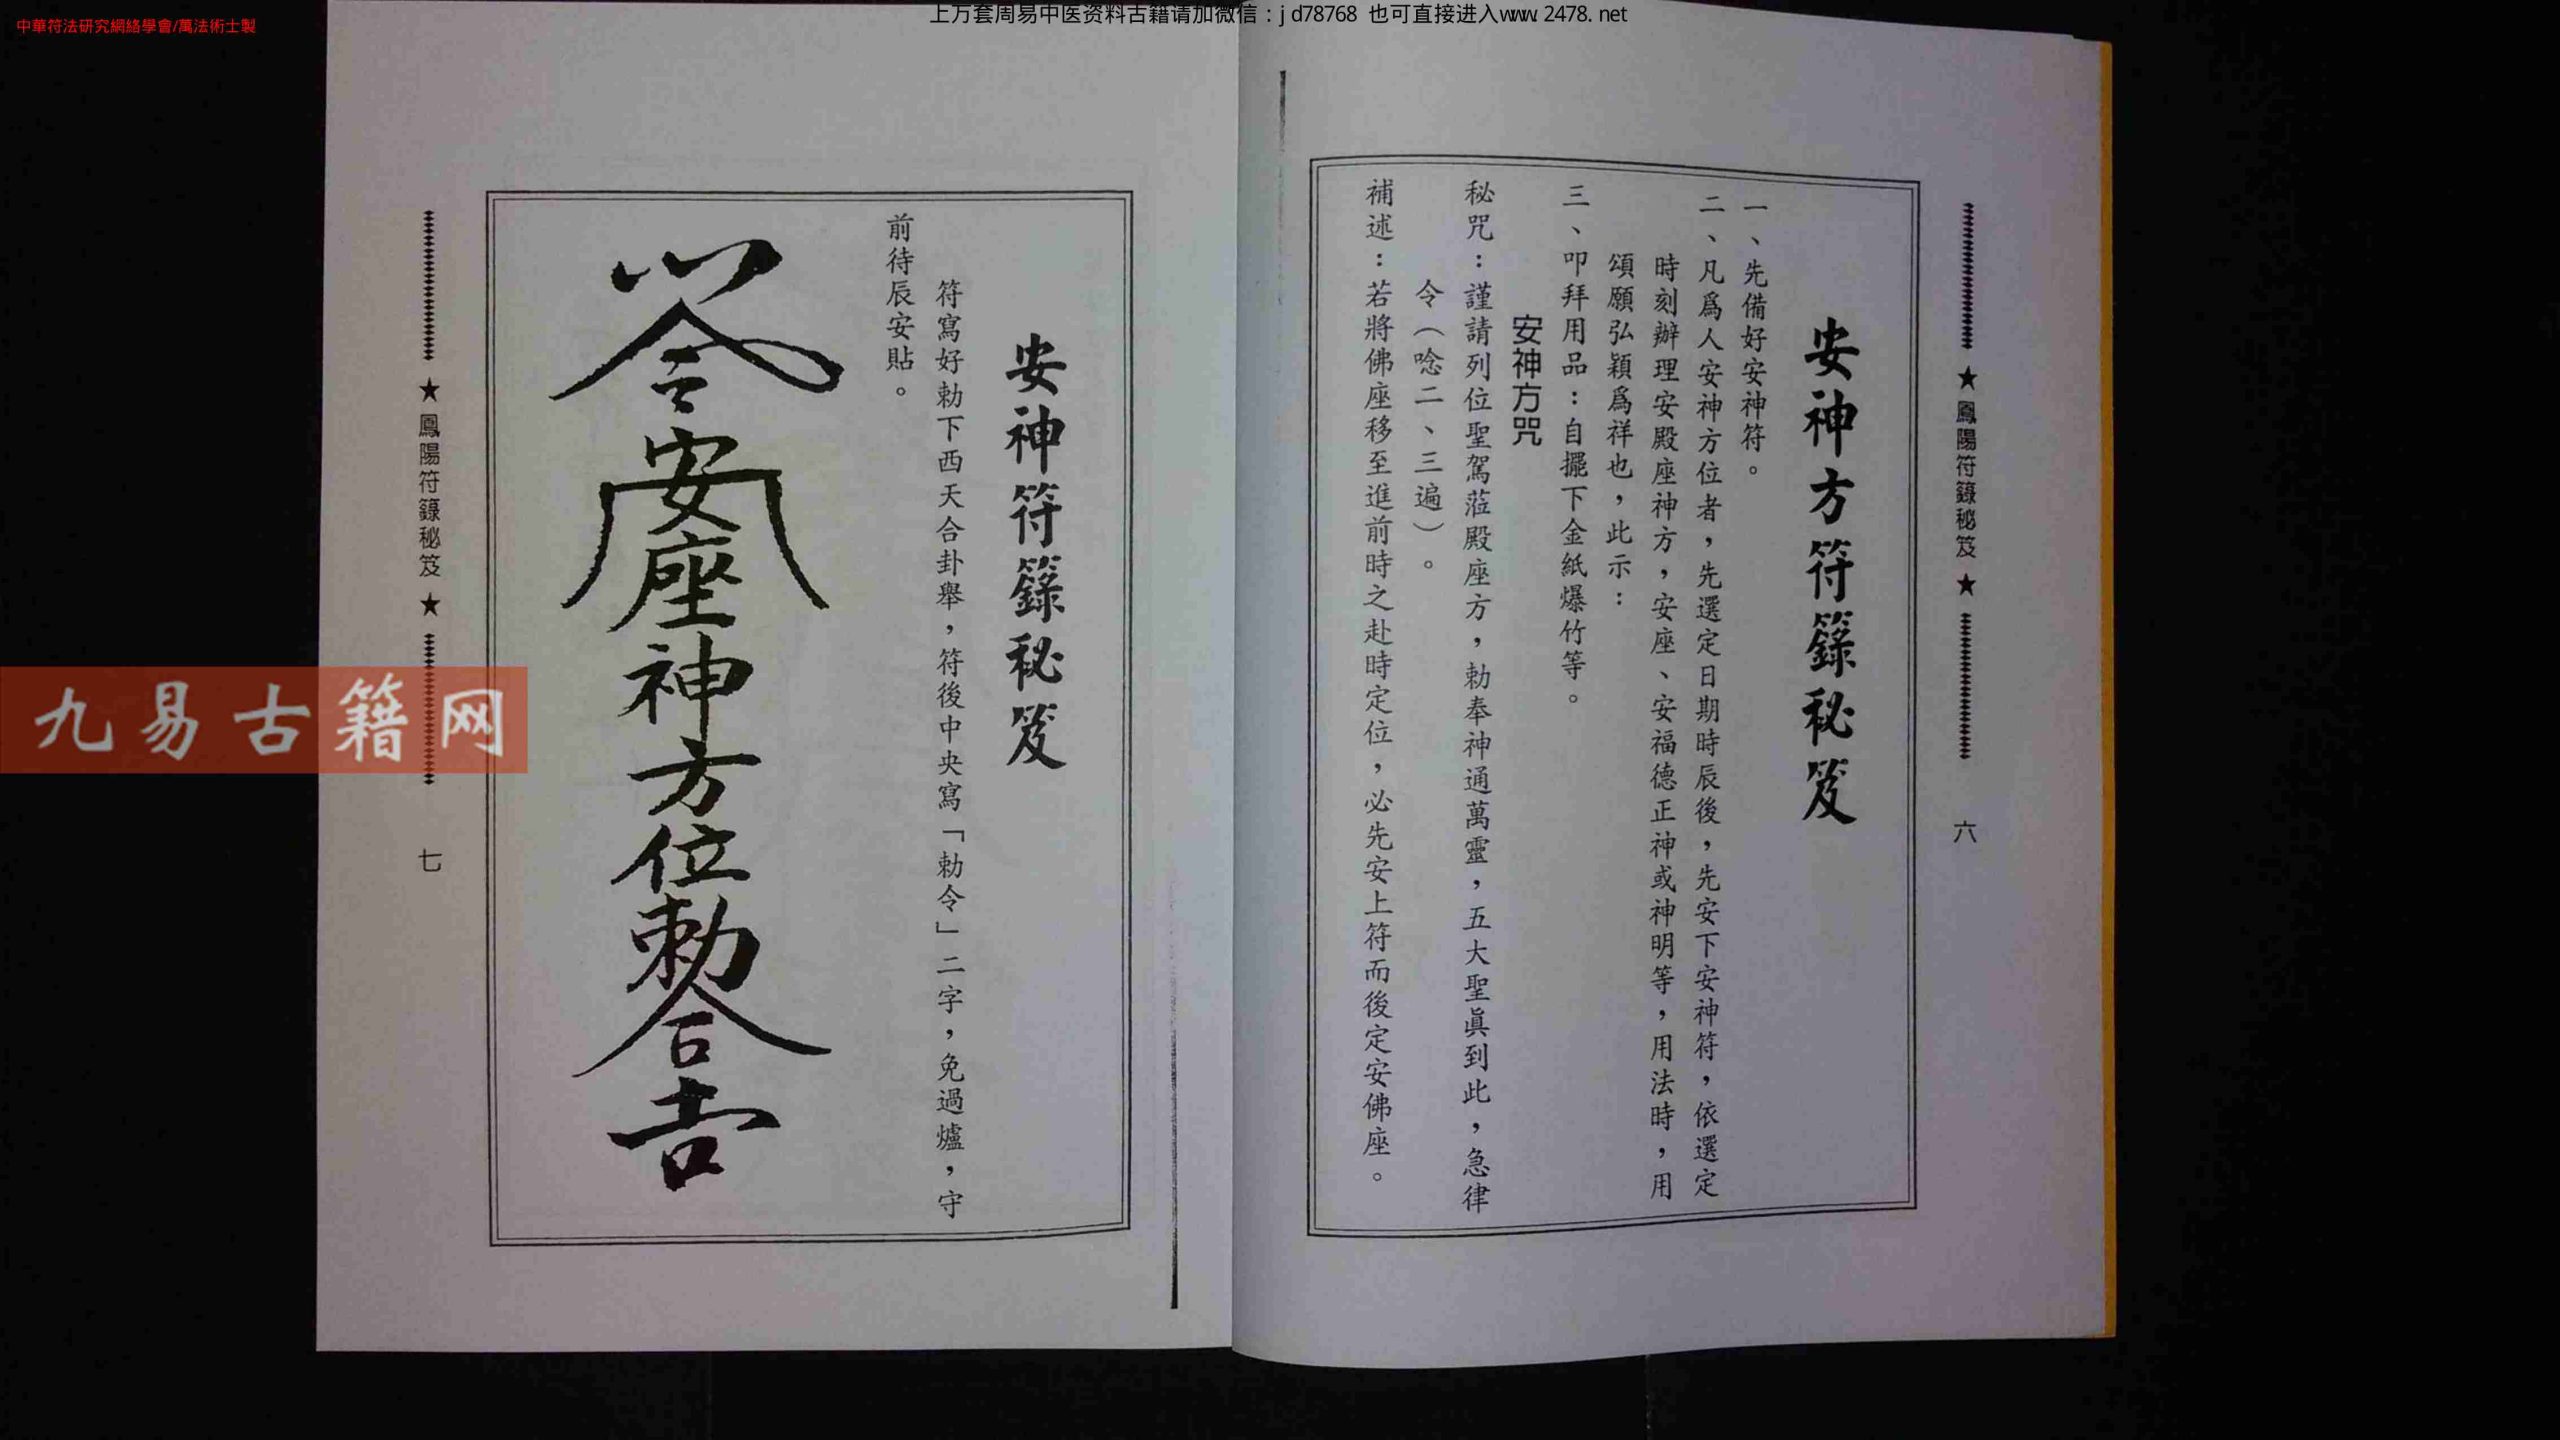 上万套周易中医资料古籍请加微信：jd78768 也可直接进入www.2478.net
中華符法研究網絡學會/萬法術士製
★鳳陽符籙秘笈★
六
安神方符籙秘笈
一、先備好安神符。
二、凡爲人安神方位者，先選定日期時辰後，先安下安神符，依選定
時刻辦理安殿座神方，安座、安福德正神或神明等，用法時，用
頌願弘穎爲祥也，此示：
三、叩拜用品：自擺下金紙爆竹等。
安神方咒
秘咒：謹請列位聖駕蒞殿座方，勅奉神通萬靈，五大聖眞到此，急律
令（唸二、三遍）。
補述：若將佛座移至進前時之赴時定位，必先安上符而後定安佛座。
安神符籙秘笈
符寫好勅下西天合卦舉，符後中央寫「勅令」二字，免過爐，守
前待辰安貼。
安座神方位勅合吉
★鳳陽符籙秘笈★
七
九易古籍网